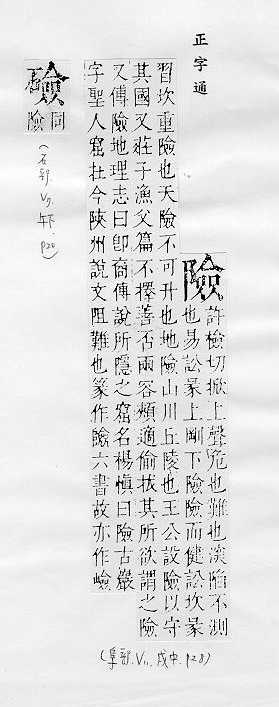 正字通
險 許檢切掀上聲危也難也深陷不測
也易訟彖上剛下險險而健訟坎彖
習坎重險也天險不可升也地險山川丘陵也王公設險以守
其國又莊子漁父篇不擇善否兩容頰適偷拔其所欲謂之險
又傅險地理志曰卽商傅說所隱之窟名楊慎曰險古巖
字聖人窟在今陝州說文阻難也篆作險六書故亦作嶮
(阜部.V11.戌中.P28)
礆 同險
(石部 V7.午下.P20)